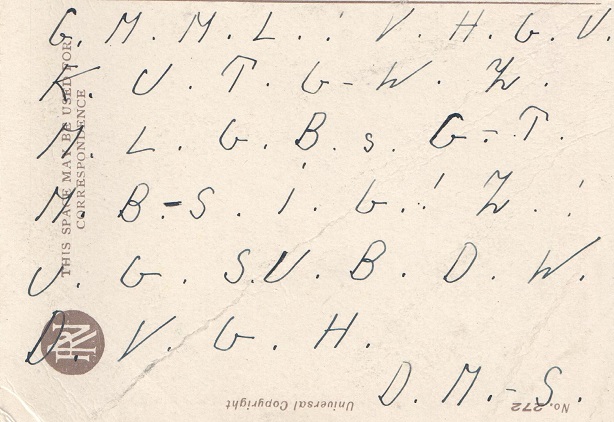 G. M. M. L. : V. H. G. V.
K. U. T. G-W. Z.
N. L. G. B. s. G-T.
M. B-S. i. G.! Z.!
J. G. S.U. B. D. W.
D. V. G. H.
D. M.-S.
THIS SPACE MAY BE USED FOR
CORRESPONDENCE
RN
Universal Copyright
No. 272